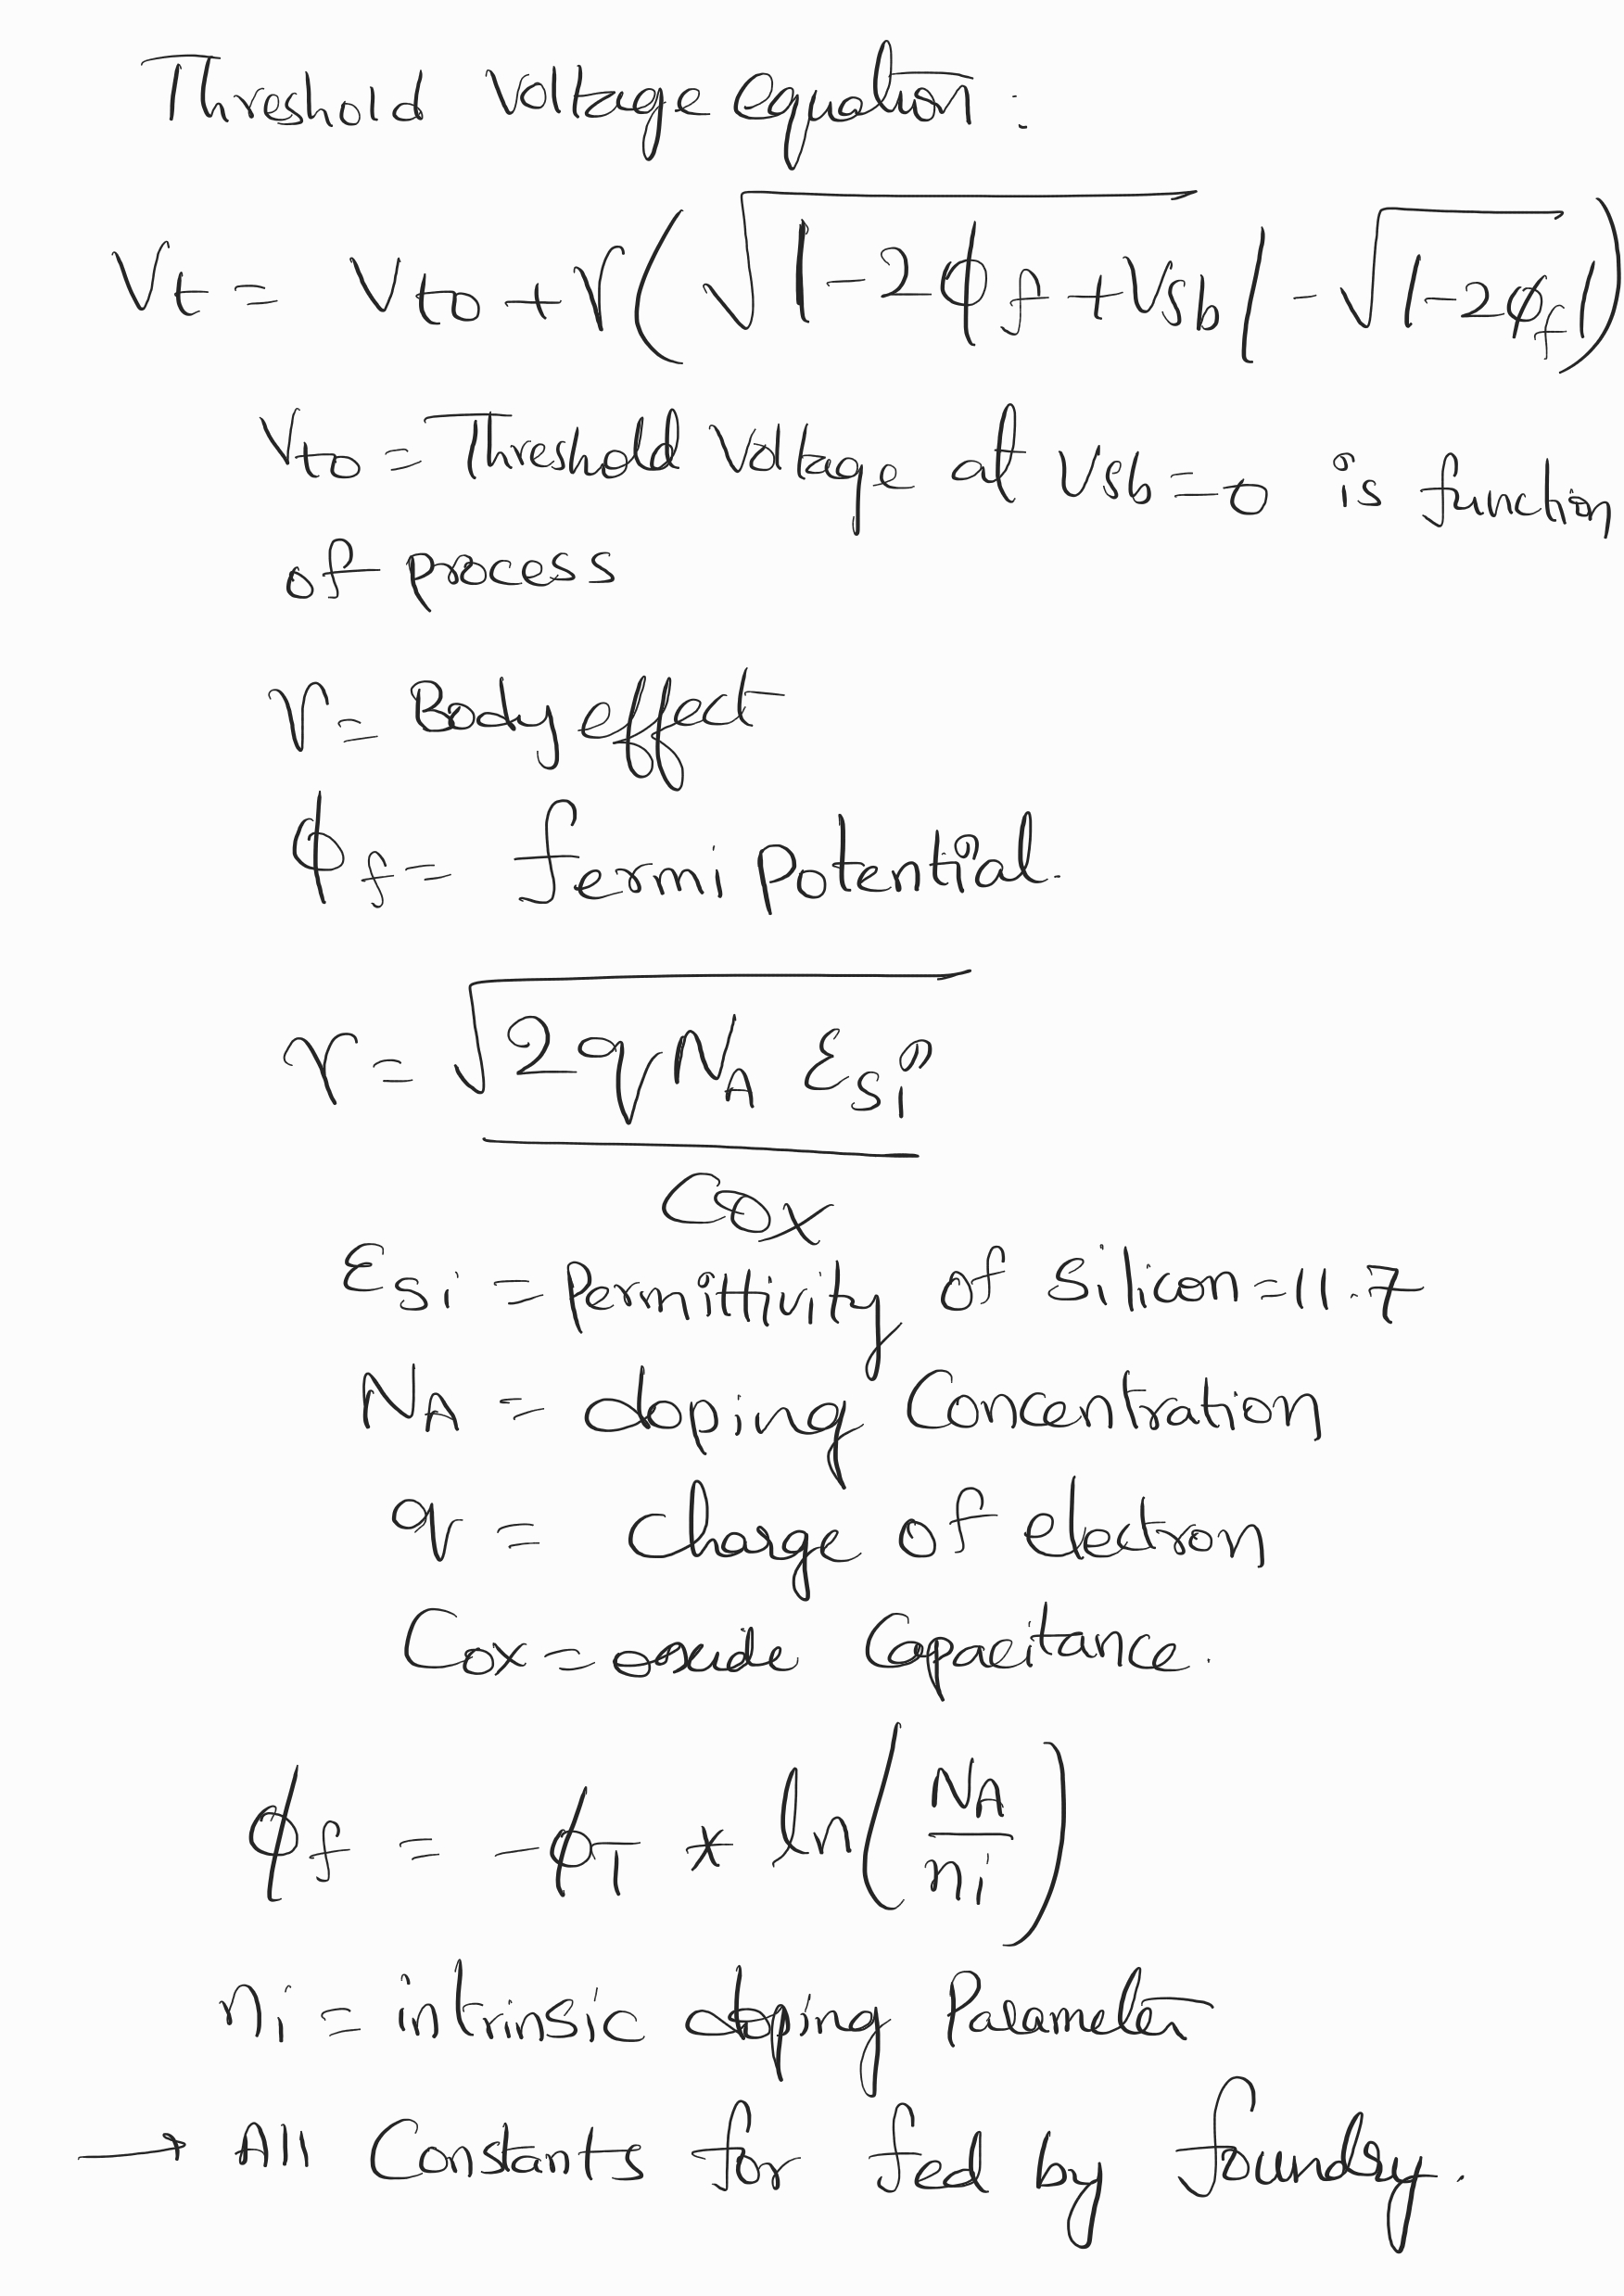 Threshold Voltage equation:
Vt = Vt0 + γ(√|-2ϕf + Vsb| - √|-2ϕf|)
Vt0 = Threshold Voltage at Vsb = 0 is function
of process
γ = Body effect
ϕf = fermi potential
γ = √2qNA εsi
Cox
εsi = permittivity of silicon = 11.7
NA = doping concentration
q = charge of electron
Cox = oxide capacitance.
ϕf = -ϕT * ln(NA/ni)
ni = intrinsic doping Parameter
→ All Constants for fed by foundry.